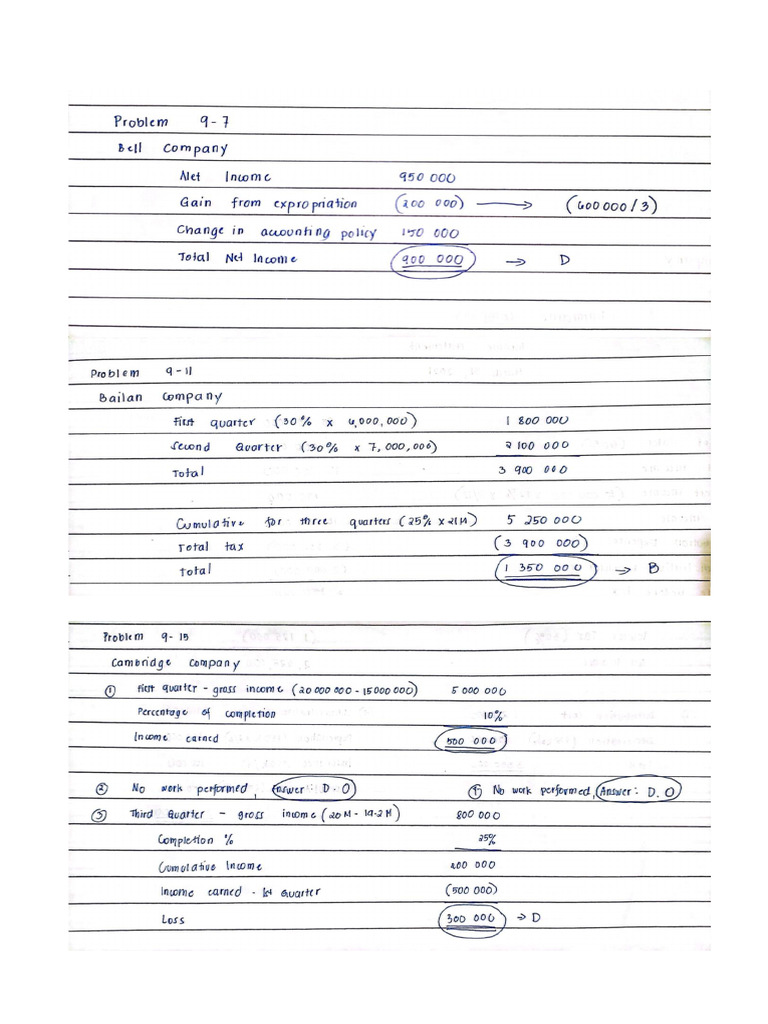 Problem 9-7
Bell Company
Net Income 950 000
Gain from expropriation (200 000) → (600 000/3)
Change in accounting policy 150 000
Total Net Income 900 000 → D
Problem 9-11
Bailan Company
First quarter (30% x 6,000,000) 1 800 000
Second Quarter (30% x 7,000,000) 2 100 000
Total 3 900 000
Cumulative for three quarters (25% x 21M) 5 250 000
Total tax (3 900 000)
Total 1 350 000 → B
Problem 9-15
Cambridge Company
① First quarter - gross income (20 000 000 - 15 000 000) 5 000 000
Percentage of completion 10%
Income earned 500 000
② No work performed, Answer: D. 0 ④ No work performed, Answer: D. 0
③ Third Quarter - gross income (20M - 19.2M) 800 000
Completion % 25%
Cumulative Income 200 000
Income earned - 1st Quarter (500 000)
Loss 300 000 → D